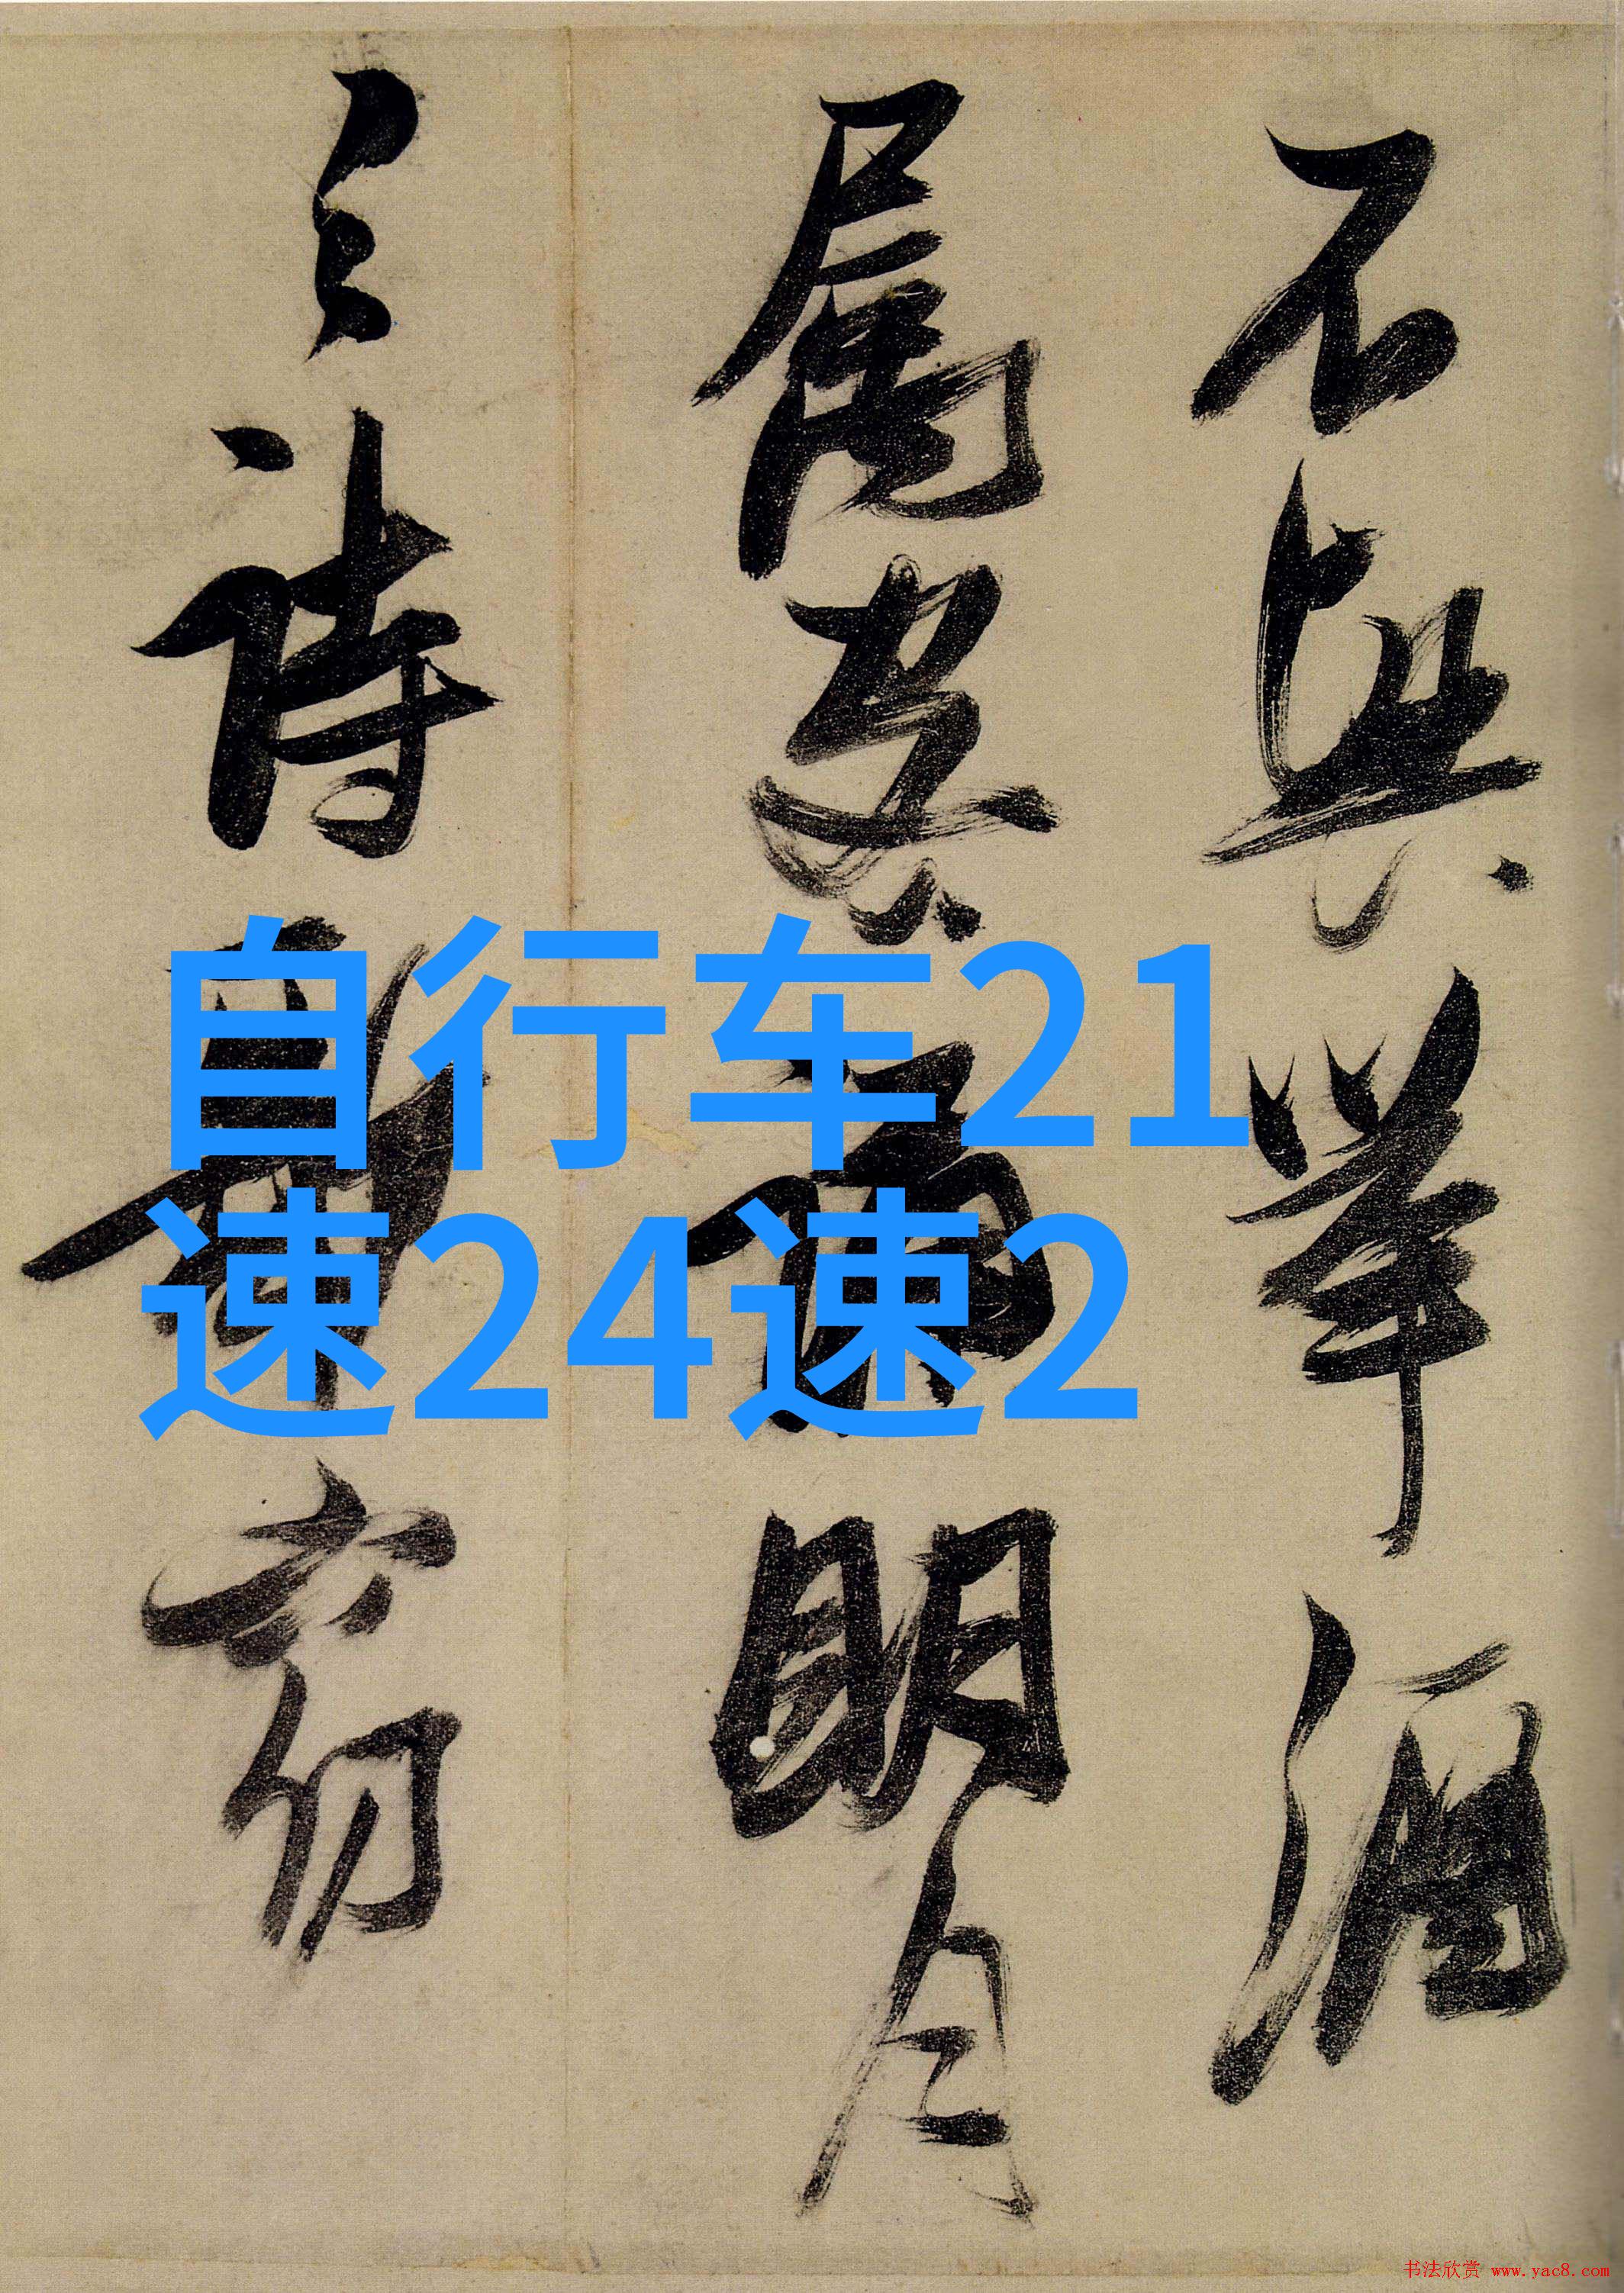 不興舉酒
屬客誦明月
之詩歌窈
自行车21
速24速2
书法欣赏 www.yac8.com